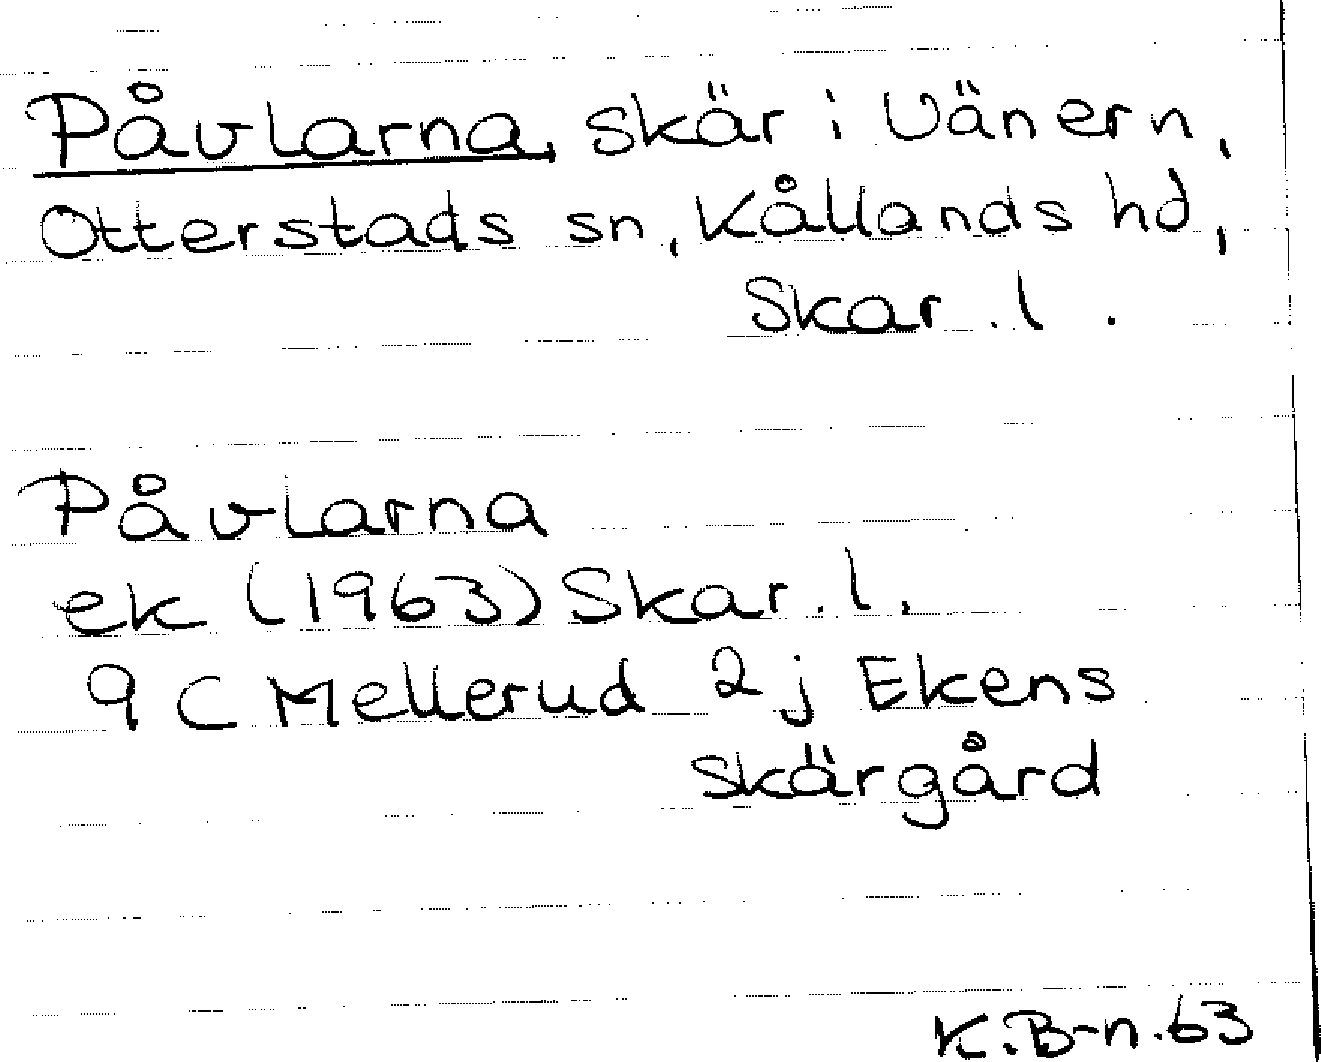 Påvlarna, skär i Vänern,
Otterstads sn, Kållands hd,
Skar. l.
Påvlarna
ek (1963) Skar. l.
9 C Mellerud 2 j Ekens
skärgård
K.B-n.63